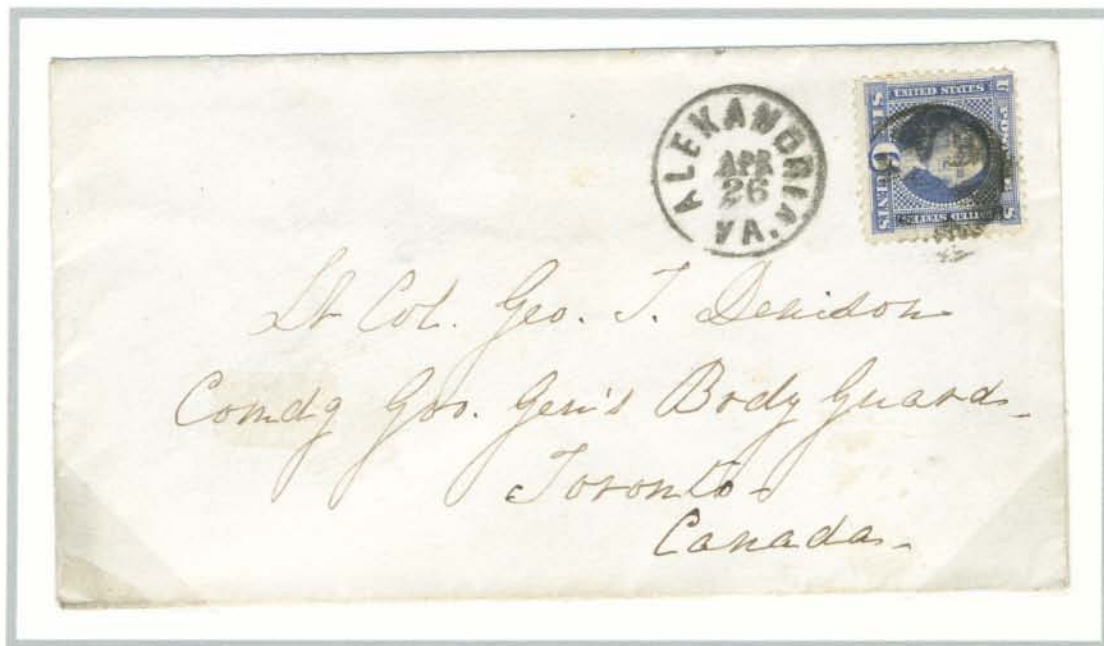 ALEXANDRIA
APR
26
VA.
UNITED STATES
6
CENTS
Lt Col. Geo. T. Denison
Comdg Gov. Gen's Body Guard
Toronto
Canada